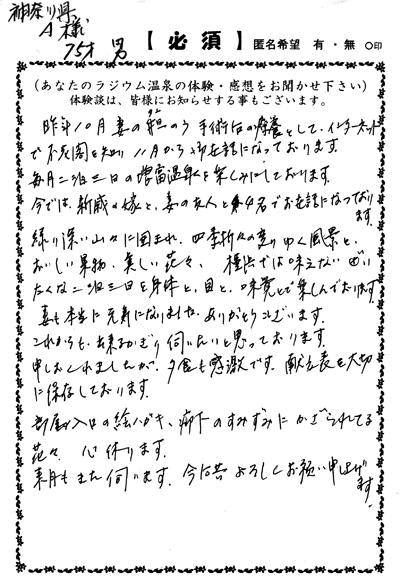 神奈川県
A様
75才 男
【必須】 匿名希望 有・無 ○印
(あなたのラジウム温泉の体験・感想をお聞かせ下さい)
体験談は、皆様にお知らせする事もございます。
昨年10月妻の胆のう手術后の療養として、インターネット
で不老閣を知り 11月からお世話になっております。
毎月二泊三日の濃富温泉を楽しみにしております。
今では、親戚の嫁と、妻の友人と4名でお世話になっており
ます。
緑り深い山々に囲まれ、四季折々の変りゆく風景と、
おいしい果物、美しい花々、横浜では味えないぜい
たくな二泊三日を身体と、目と、味覚とで楽しんでおります。
妻も本当に元気になりました。ありがとうございます。
これからも、出来るかぎり伺いたいと思っております。
申しおくれましたが、夕食も感激です。献立表を大切
に保存しております。
部屋入口の絵ハガキ、廊下のすみずみにかざられてる
花々 心休ります。
来月もまた伺います。今后共よろしくお願い申上げ
ます。